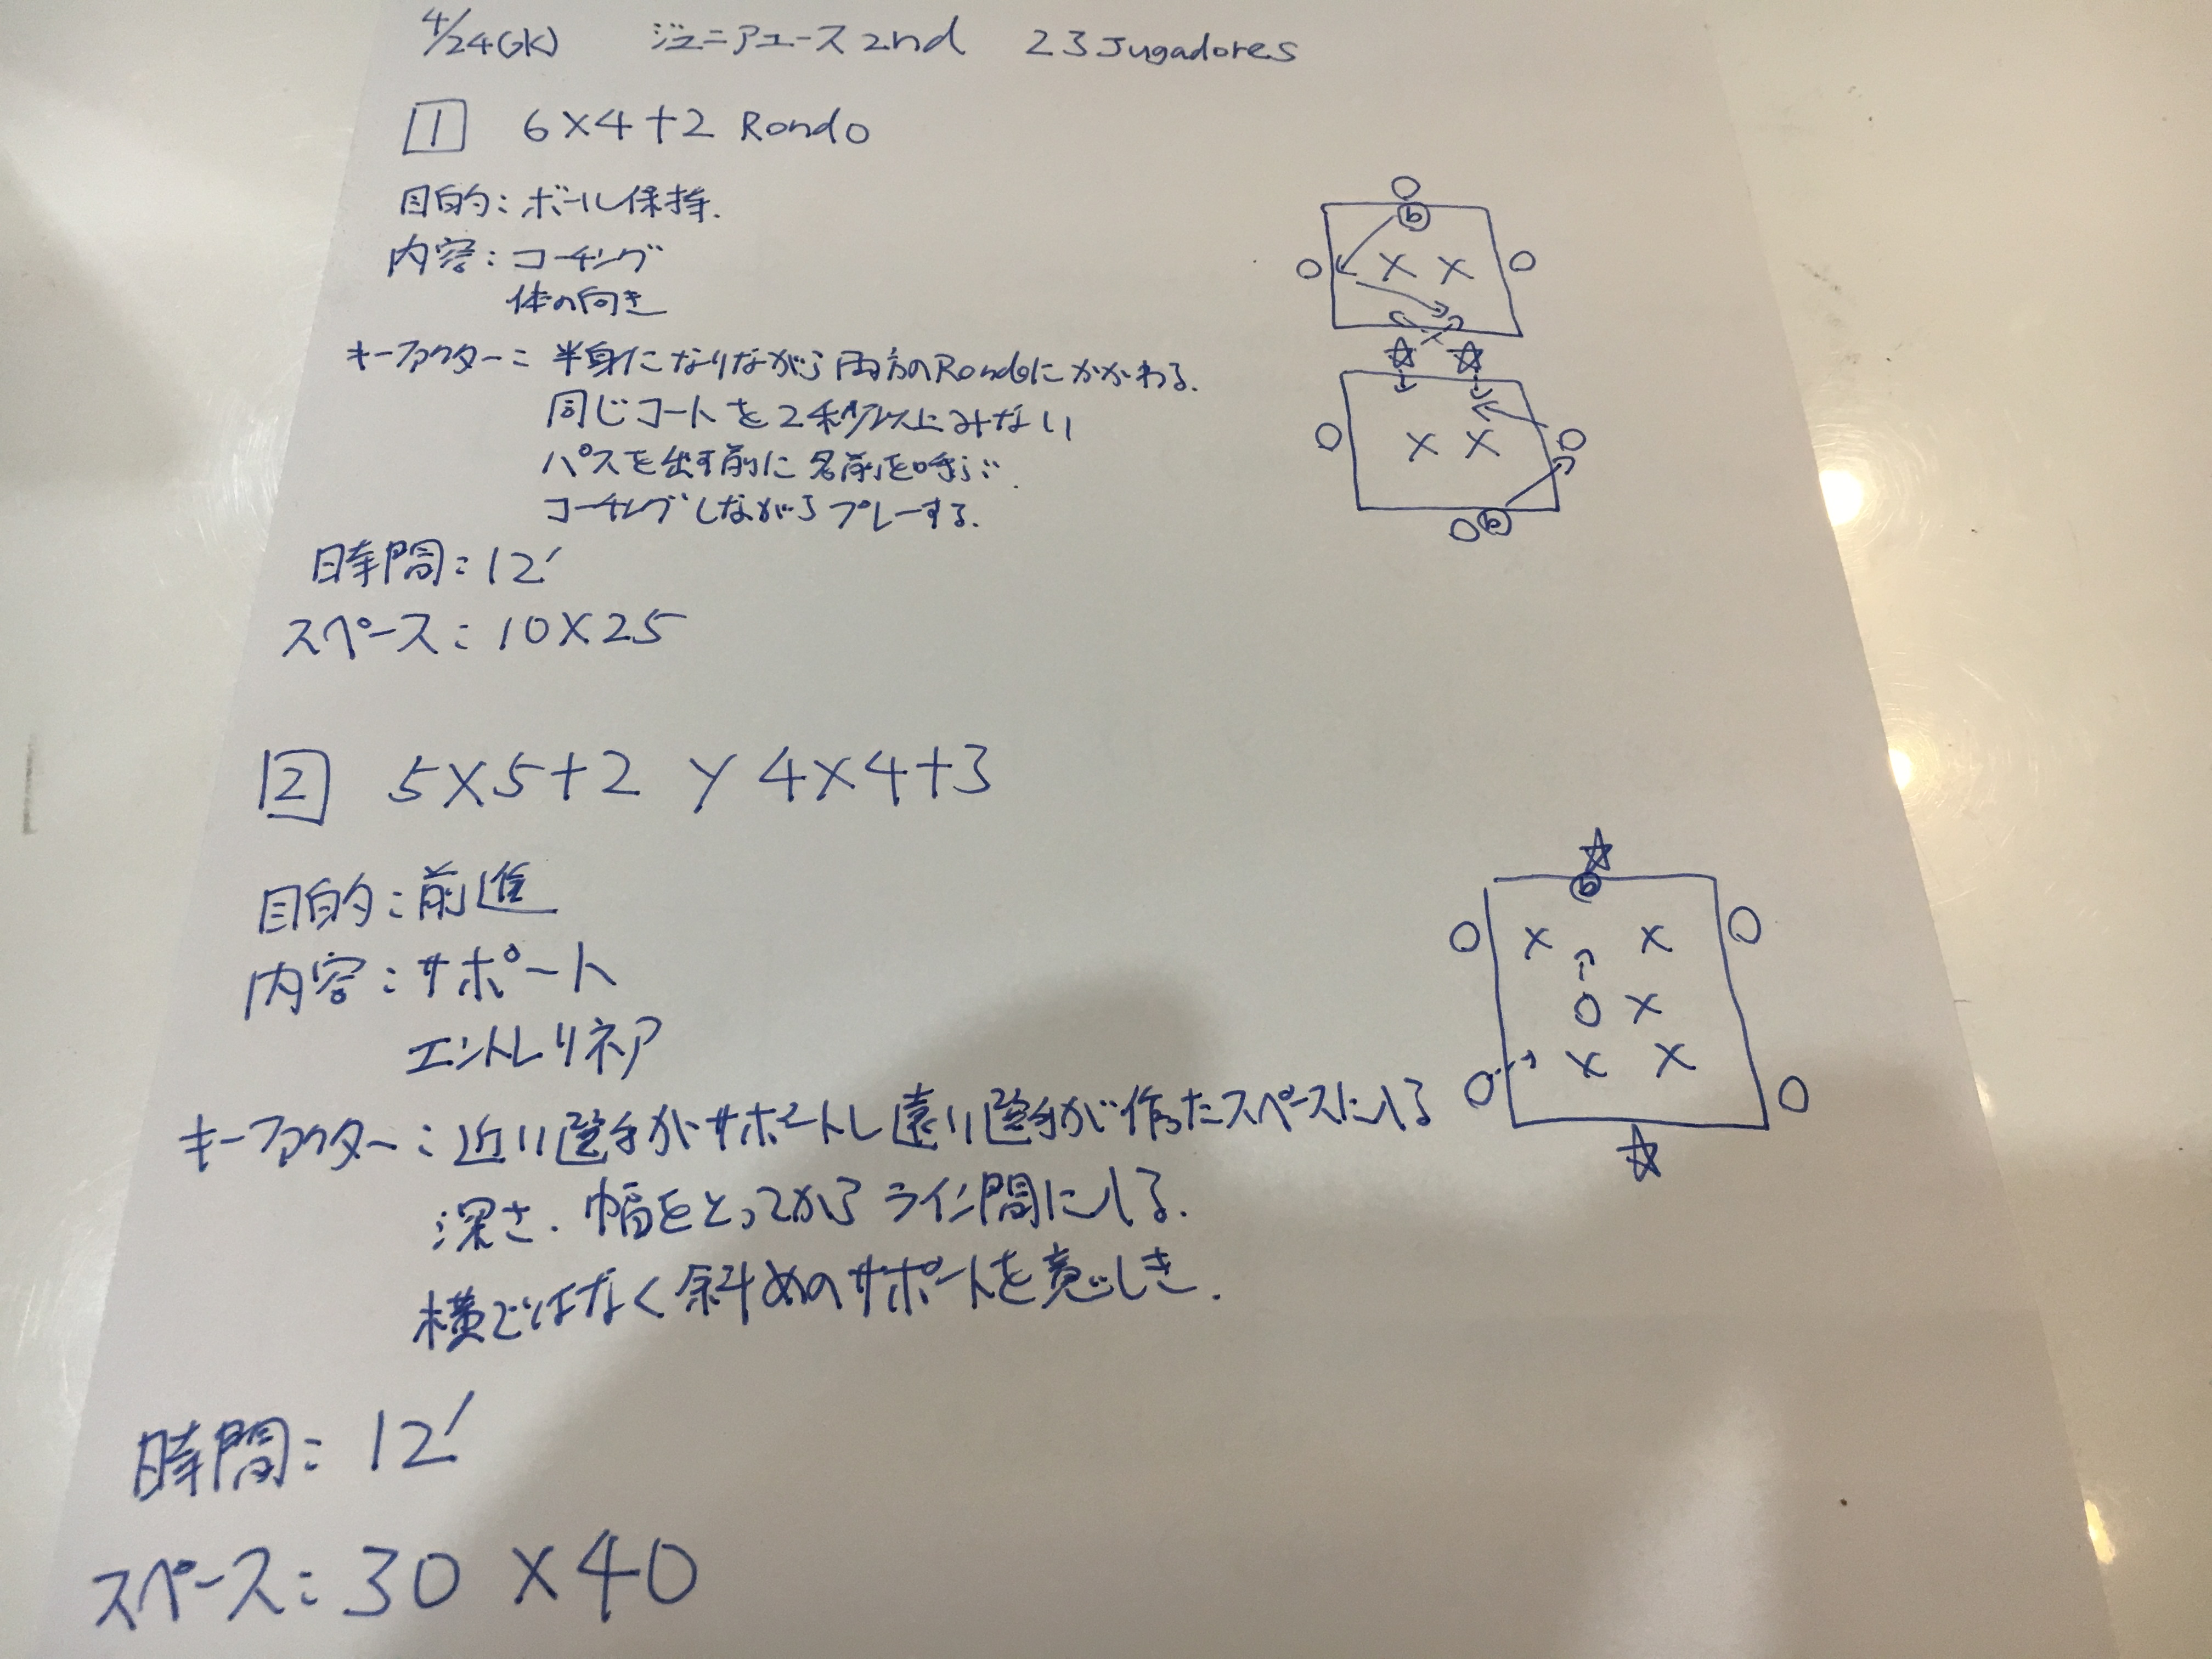 4/24(水) ジュニアユース2nd 23 Jugadores
1 6×4+2 Rondo
目的:ボール保持.
内容:コーチング
体の向き
キーファクター:半身になりながら両方のRondoにかかわる.
同じコートを2秒以上みない
パスを出す前に名前を呼ぶ.
コーチングしながらプレーする.
時間:12′
スペース:10×25
2 5×5+2 y 4×4+3
目的:前進
内容:サポート
エントレリネア
キーファクター:近い選手がサポートし遠い選手が作ったスペースに入る
深さ.幅をとってからライン間に入る.
横ではなく斜めのサポートを意しき.
時間:12′
スペース:30×40